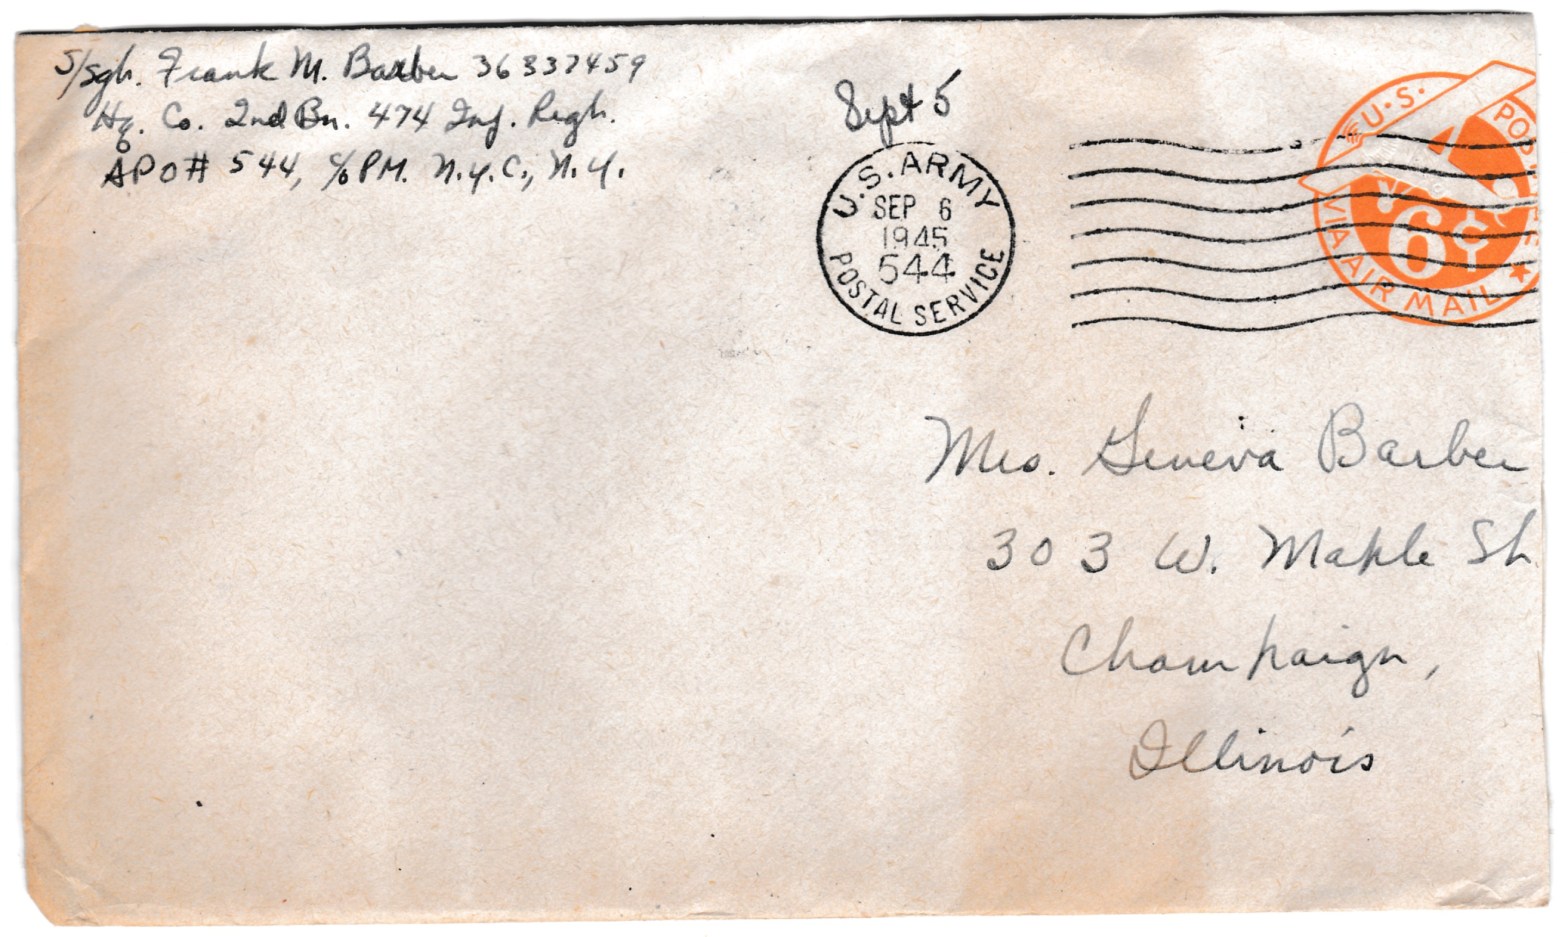 S/Sgt. Frank M. Barber 36337459
Hq. Co. 2nd Bn. 474 Inf. Regt.
APO# 544, c/o PM. N.Y.C., N.Y.
Sept 5
U.S. ARMY
SEP 6
1945
544
POSTAL SERVICE
U.S. POSTAGE
6¢
VIA AIR MAIL
Mrs. Geneva Barber
303 W. Maple St.
Champaign,
Illinois